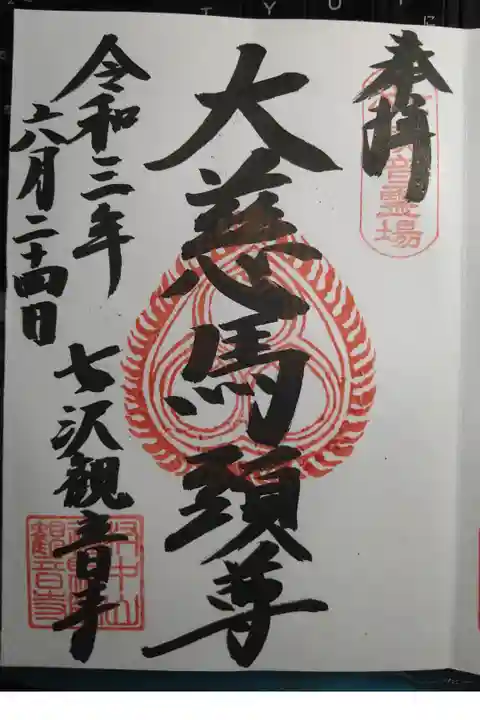 奉拝
音霊場
大慈馬頭尊
令和三年
六月二十四日
七沢観音寺
中山
観音寺
T Y U I
に